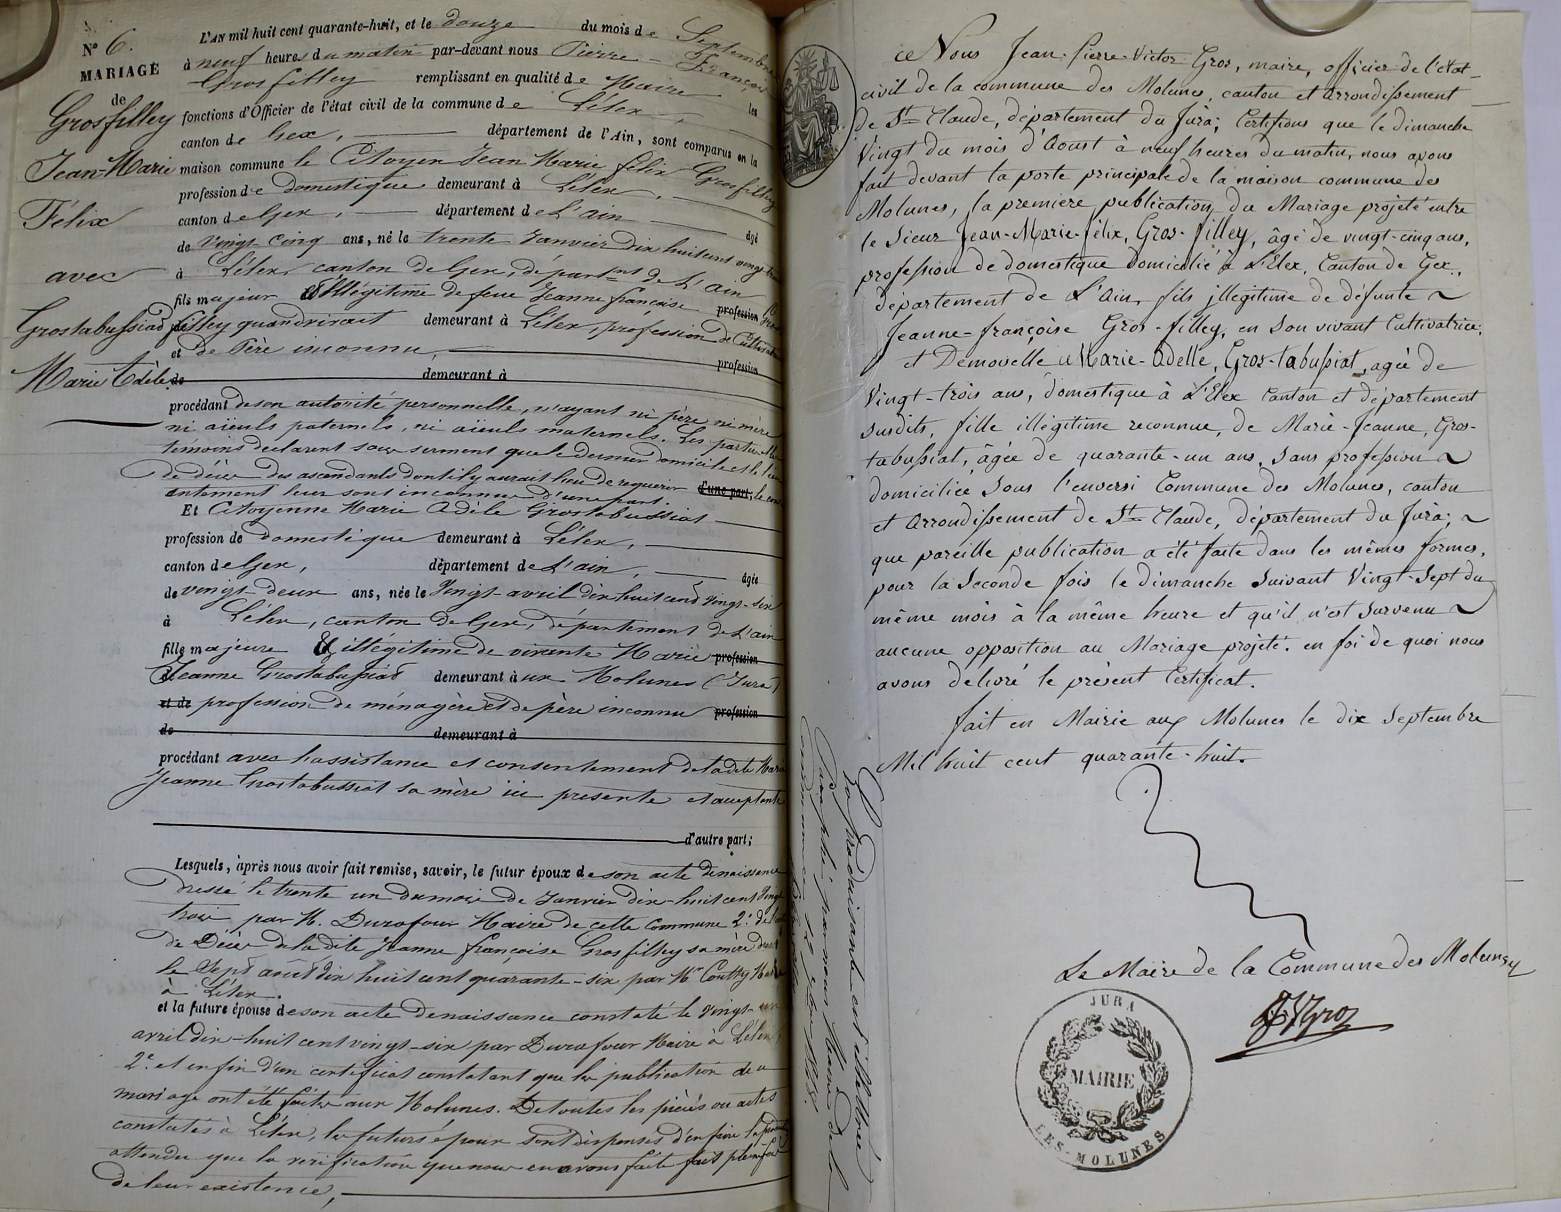 N° 6.
MARIAGE
de
Grosfilley
Jean-Marie
Félix
avec
Grostabussiad
Marie Adèle
L'AN mil huit cent quarante-huit, et le douze du mois de Septembre
à neuf heures du matin par-devant nous Pierre-François
Grosfilley remplissant en qualité de Maire les
fonctions d'Officier de l'état civil de la commune de Lélex,
canton de Gex, département de l'Ain, sont comparus en la
maison commune le Citoyen Jean Marie félix Grosfilley
profession de domestique demeurant à Lélex,
canton de Gex, département de L'ain âgé
de vingt cinq ans, né le trente Janvier dix huit cent vingt trois
à Lélex, canton de Gex, départemt de L'ain
fils majeur & illégitime de feue Jeanne françoise profession Gros
filley quandvivait demeurant à Lélex, profession de Cultivatrice
et de Père inconnu, profession
de demeurant à
procédant de son autorité personnelle, n'ayant ni père ni mère
ni aïeuls paternels, ni aïeuls maternels. Les parties et les
témoins déclarent sous serment que le dernier domicile et le lieu
de décès des ascendants dont il y aurait lieu de requérir d'une part; le cons
entement leur sont inconnus d'une part.
Et Citoyenne Marie Adèle Grostabussiat
profession de domestique demeurant à Lélex,
canton de Gex, département de L'ain, âgée
de vingt deux ans, née le Vingt-avril dix huit cent vingt-six
à Lélex, canton de Gex, département de L'ain
fille majeure & illégitime de vivante Marie profession
Jeanne Grostabussiad demeurant à ux Molunes (Jura)
et de profession de ménagère et de père inconnu profession
de demeurant à
procédant avec l'assistance et consentement de la dite Marie
Jeanne Grostabussiat sa mère ici présente et acceptante
d'autre part;
Lesquels, après nous avoir fait remise, savoir, le futur époux de son acte de naissance
dressé le trente un du mois de Janvier dix-huit cent vingt
trois par M. Durafour Maire de cette commune 2° de l'acte
de Décès de la dite Jeanne françoise Grosfilley sa mère dressé
le Sept août dix huit cent quarante-six par Mr Coutty Maire
à Lélex.
et la future épouse de son acte de naissance constaté le vingt-un
avril dix-huit cent vingt-six par Durafour Maire à Lélex
2° et enfin d'un certificat constatant que les publications de ce
mariage ont été faites aux Molunes. De toutes les pièces ou actes
constatés à Lélex, les futurs époux sont dispensés d'en faire la
attendu que la vérification que nous en avons faite fait pleine foi
de leur existence,
Nous Jean-Pierre-Victor Gros, maire, officier de l'état-
civil de la commune des Molunes, canton et arrondissement
de St Claude, département du Jura; Certifions que le dimanche
Vingt du mois d'Aoust à neuf heures du matin, nous avons
fait devant la porte principale de la maison commune des
Molunes, la premiere publication du Mariage projeté entre
le Sieur Jean-Marie-félix, Gros-filley, âgé de vingt-cinq ans,
profession de domestique domicilié à L'Elex, Canton de Gex,
département de L'Ain, fils illégitime de défunte
Jeanne-françoise Gros-filley, en Son vivant Cultivatrice;
et Demoiselle Marie-Adelle, Gros-tabussiat, agée de
Vingt-trois ans, domestique à L'Elex Canton et département
susdits, fille illégitime reconnue, de Marie-Jeanne, Gros-
tabussiat, âgée de quarante-un ans, sans profession
domiciliée Sous l'envers; Commune des Molunes, canton
et arrondissement de St Claude, département du Jura;
que pareille publication a été faite dans les mêmes formes,
pour la Seconde fois le dimanche Suivant Vingt-Sept du
même mois à la même heure et qu'il n'est Survenu
aucune opposition au Mariage projeté. en foi de quoi nous
avons delivré le présent Certificat.
fait en Mairie aux Molunes le dix Septembre
Mil huit cent quarante-huit.
Le Maire de la Commune des Molunes
JVGroz
JURA
MAIRIE
LES-MOLUNES